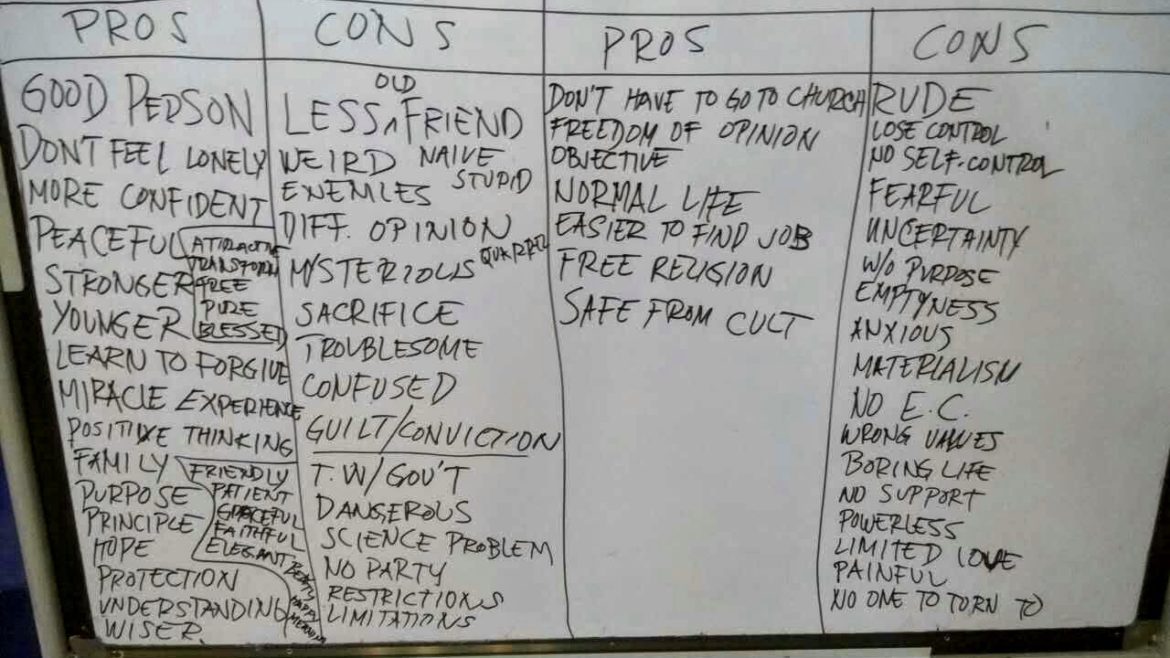 PROS
GOOD PERSON
DONT FEEL LONELY
MORE CONFIDENT
PEACEFUL
ATTRACTIVE
TRANSFORM
STRONGER
FREE
PURE
YOUNGER
BLESSED
LEARN TO FORGIVE
MIRACLE EXPERIENCE
POSITIVE THINKING
FAMILY
FRIENDLY
PATIENT
PURPOSE
GRACEFUL
PRINCIPLE
FAITHFUL
HOPE
ELEGANT BEAUTY
PROTECTION
HAPPY
UNDERSTANDING
WISER
CONS
OLD
LESS ^ FRIEND
WEIRD NAIVE
STUPID
ENEMIES
DIFF. OPINION
QUARREL
MYSTERIOUS
SACRIFICE
TROUBLESOME
CONFUSED
GUILT/CONVICTION
T. W/ GOV'T
DANGEROUS
SCIENCE PROBLEM
NO PARTY
RESTRICTIONS
LIMITATIONS
PROS
DON'T HAVE TO GO TO CHURCH
FREEDOM OF OPINION
OBJECTIVE
NORMAL LIFE
EASIER TO FIND JOB
FREE RELIGION
SAFE FROM CULT
CONS
RUDE
LOSE CONTROL
NO SELF-CONTROL
FEARFUL
UNCERTAINTY
W/O PURPOSE
EMPTYNESS
ANXIOUS
MATERIALISM
NO E.C.
WRONG VALUES
BORING LIFE
NO SUPPORT
POWERLESS
LIMITED LOVE
PAINFUL
NO ONE TO TORN TO